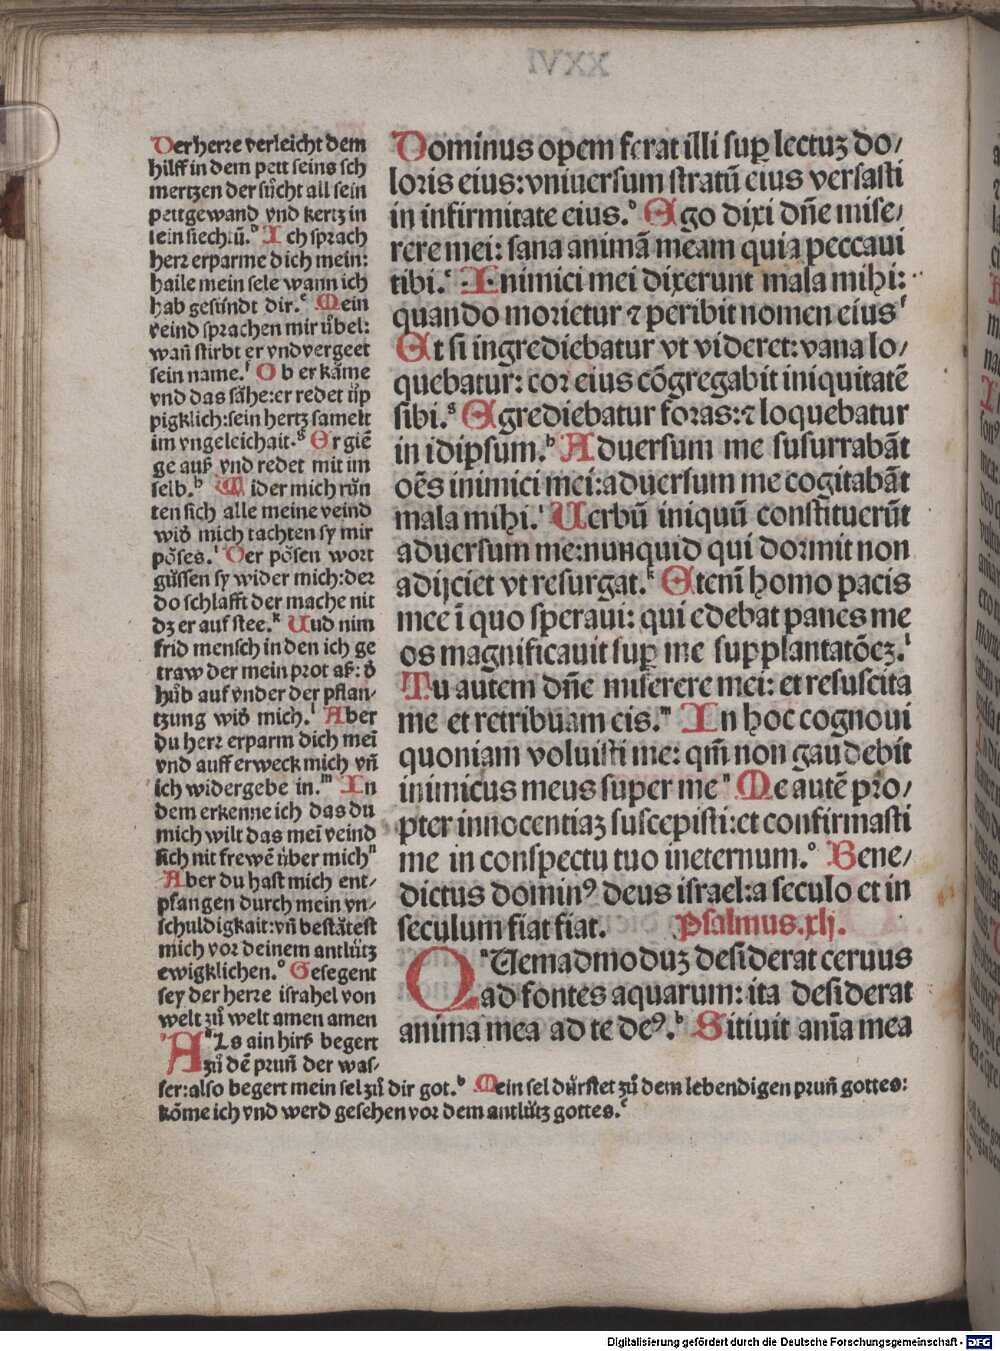 XXVI
Der herre verleicht dem
hilff in dem pett seins sch
mertzen der sücht all sein
pettgewand vnd kertz in
sein siechtū.ᵈ Ich sprach
herr erparme dich mein:
haile mein sele wann ich
hab gesündt dir.ᵉ Mein
veind sprachen mir übel:
wañ stirbt er vnd vergeet
sein name.ᶠ Ob er käme
vnd das sähe:er redet üp
pigklich:sein hertz samelt
im vngeleichait.ᵍ Er giē
ge auß vnd redet mit im
selb.ʰ Wider mich rūn
ten sich alle meine veind
wid̄ mich tachten sy mir
pöses.ⁱ Der pösen wort
güssen sy wider mich:der
do schlafft der mache nit
dz er auf stee.ᵏ Uud nim
frid mensch in den ich ge
traw der mein prot aß: d̄
hůb auf vnder der pflan⸗
tzung wid̄ mich.ˡ Aber
du herr erparm dich meī
vnd auff erweck mich vñ
ich widergebe in.ᵐ In
dem erkenne ich das du
mich wilt das meī veind
sich nit frewē über michⁿ
Aber du hast mich ent⸗
pfangen durch mein vn⸗
schuldigkait:vñ bestätest
mich vor deinem antlütz
ewigklichen.ᵒ Gesegent
sey der herre israhel von
welt zů welt amen amen
Aᵃls ain hirß begert
zů dē prun̄ der was⸗
ser:also begert mein sel zů dir got.ᵇ Mein sel dürstet zů dem lebendigen prun̄ gottes:
kōme ich vnd werd gesehen vor dem antlütz gottes.ᶜ
Dominus opem ferat illi sup̲ lectuꝫ do⸗
loris eius:vniuersum stratū eius versasti
in infirmitate eius.ᵈ Ego dixi dn̄e mise⸗
rere mei: sana animā meam quia peccaui
tibi.ᵉ Inimici mei dixerunt mala mihi:
quando morietur ⁊ peribit nomen eiusᶠ
Et si ingrediebatur vt videret:vana lo⸗
quebatur: cor eius cōgregabit iniquitatē
sibi.ᵍ Egrediebatur foras:⁊ loquebatur
in idipsum.ʰ Aduersum me susurrabāt
oēs inimici mei:aduersum me cogitabāt
mala mihi.ⁱ Uerbū iniquū constituerūt
aduersum me:nunquid qui dormit non
adijciet vt resurgat.ᵏ Etenī homo pacis
mee ī quo speraui: qui edebat panes me
os magnificauit sup̲ me supplantatōeꝫ.ˡ
Tu autem dn̄e miserere mei: et resuscita
me et retribuam eis.ᵐ In hoc cognoui
quoniam voluisti me: qm̄ non gaudebit
inimicus meus super meⁿ Me autē pro⸗
pter innocentiaꝫ suscepisti:et confirmasti
me in conspectu tuo ineternum.ᵒ Bene⸗
dictus dominꝰ deus israel:a seculo et in
seculum fiat fiat. Psalmus.xlj.
Qᵃuemadmoduꝫ desiderat ceruus
ad fontes aquarum: ita desiderat
anima mea ad te deꝰ.ᵇ Sitiuit anīa mea
Digitalisierung gefördert durch die Deutsche Forschungsgemeinschaft - DFG